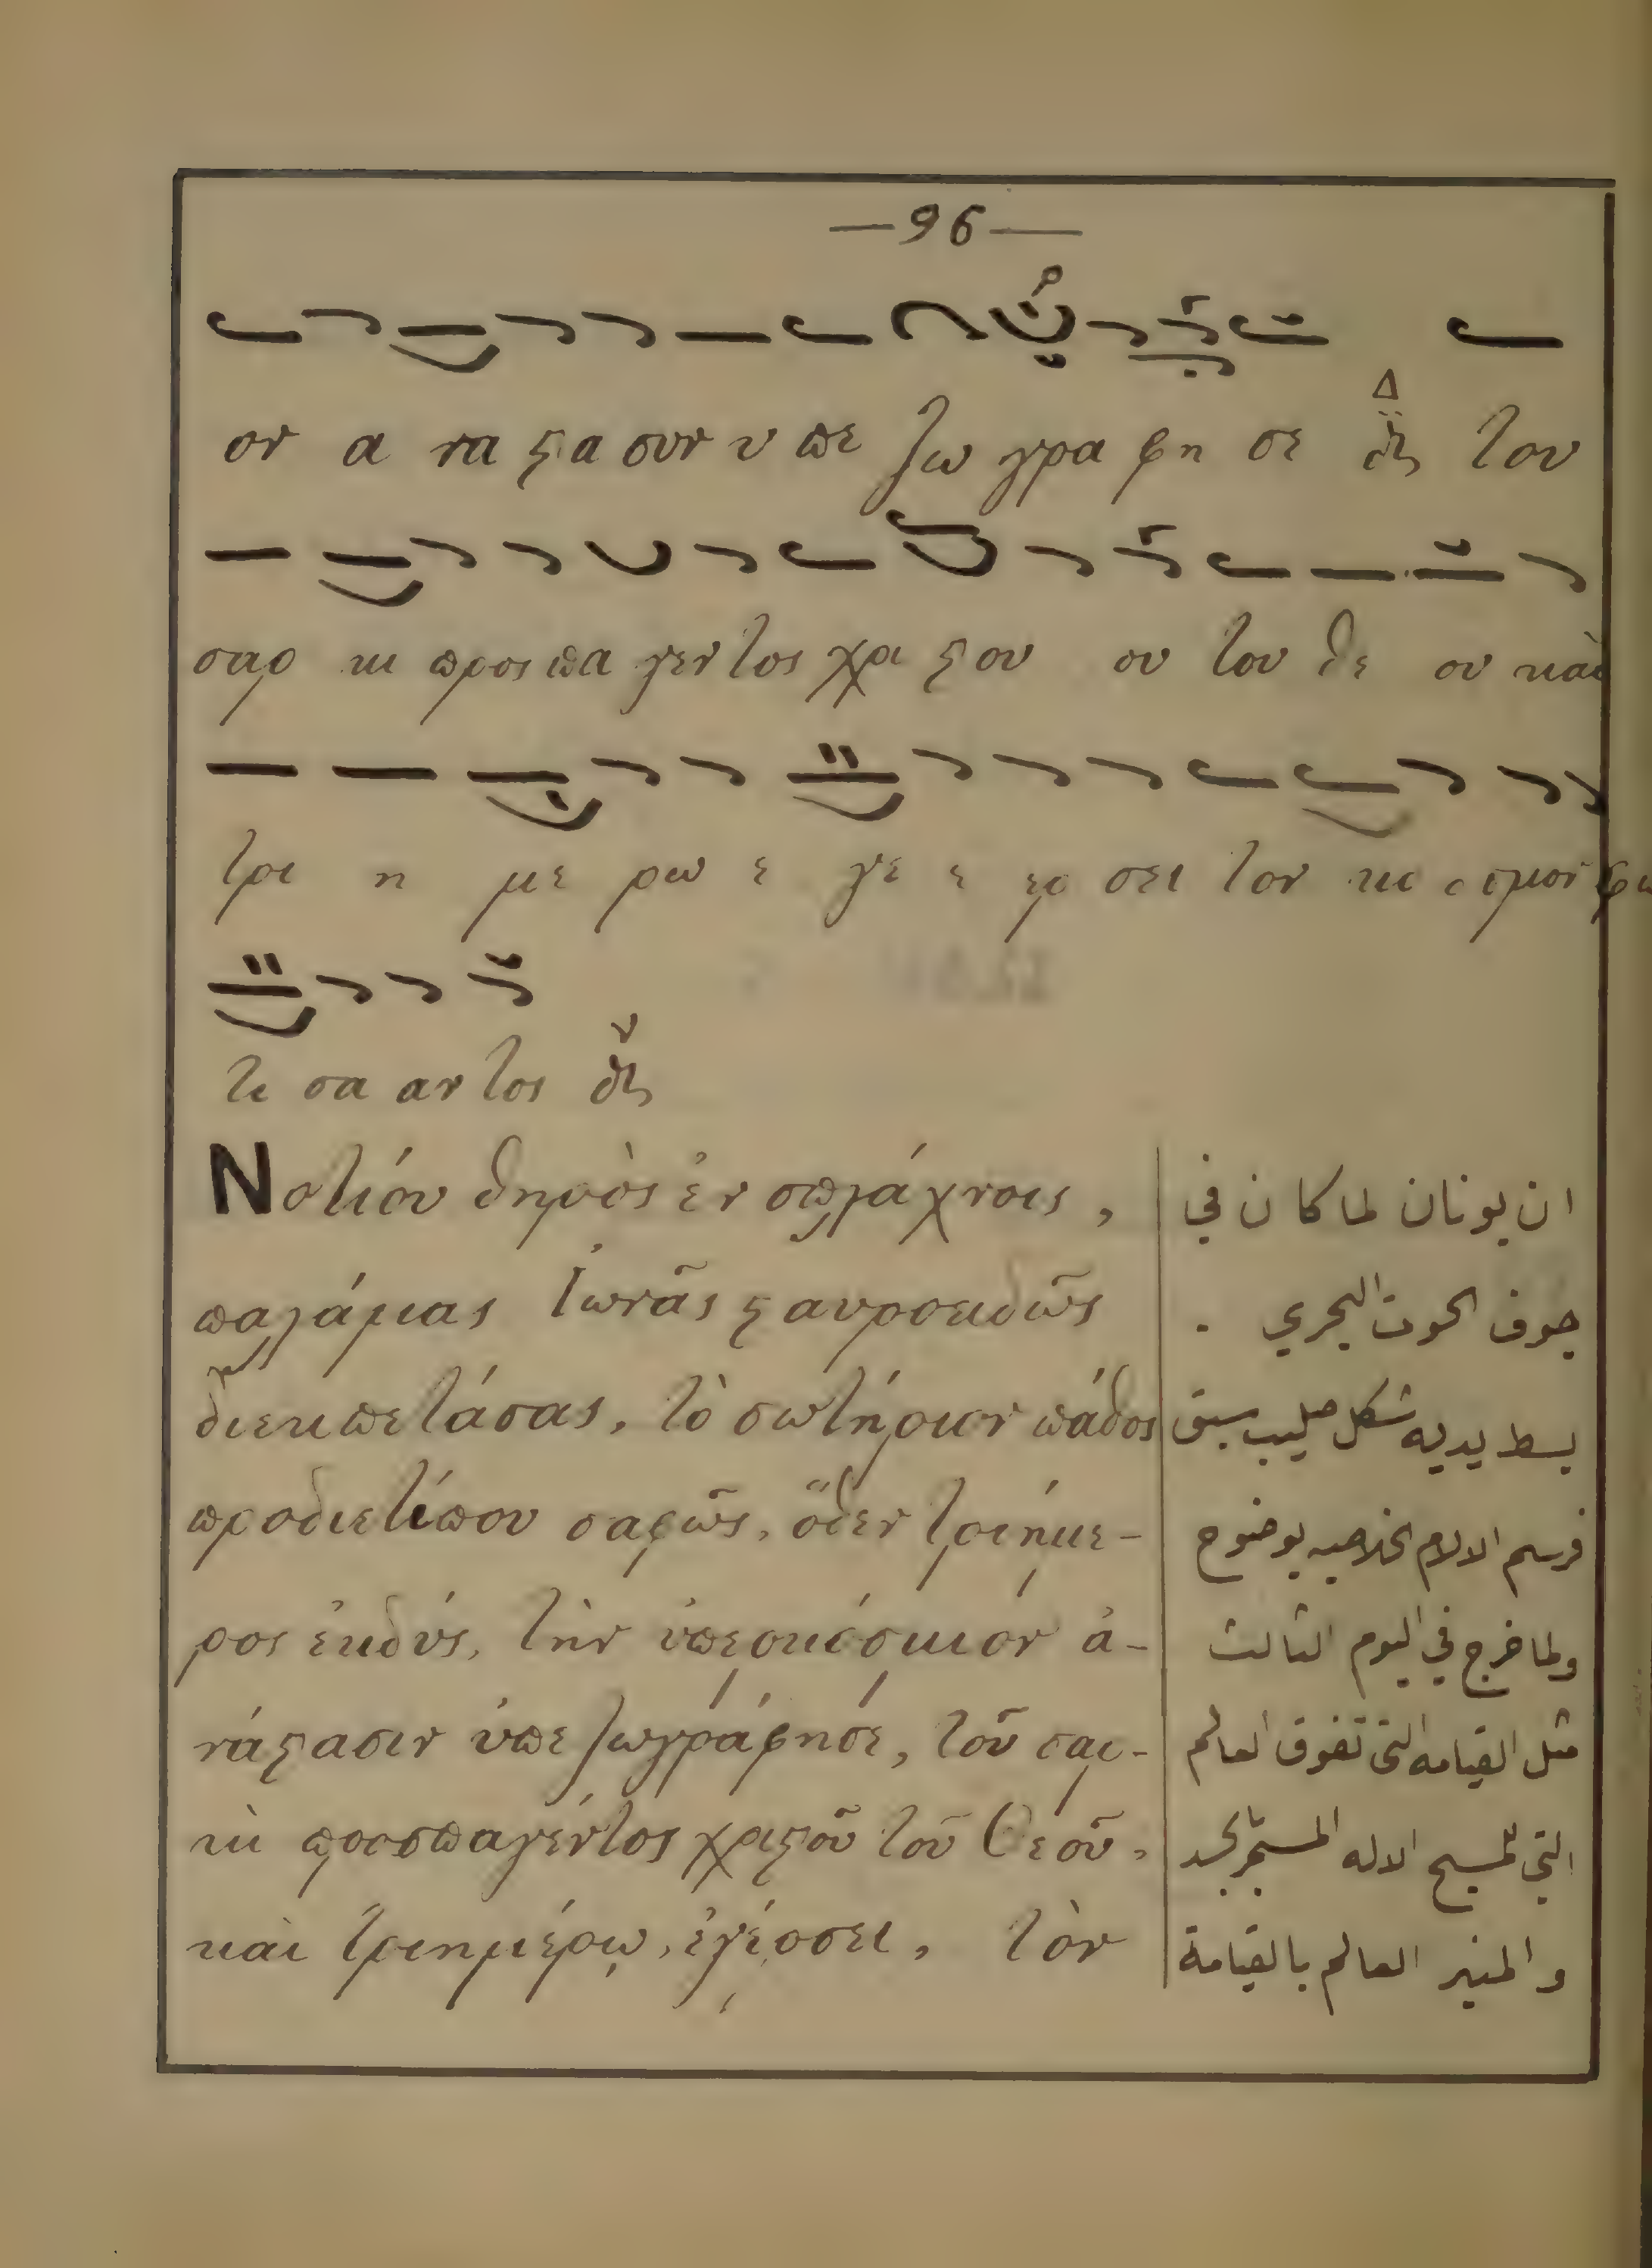 —96—
ον α να ϛα συν υ πε ζω γρα φη σε του
σαρ κι προσ πα γεν τος χρι ϛου ου του θε ου και
τρι η με ρω ε γε ε ερ σει τον κο ο σμον φω
τι σα αν τος
Νοτίου θηρὸς ἐν σπλάχνοις,
παλάμας Ἰωνᾶς ϛαυροειδῶς
διεκπετάσας, τὸ σωτήριον πάθος
προδιετύπου σαφῶς, ὅθεν τριήμε-
ρος ἐκδύς, τὴν ὑπερκόσμιον ἀ-
νάϛασιν ὑπεζωγράφησε, τοῦ σαρ-
κὶ προσπαγέντος χριϛοῦ τοῦ Θεοῦ,
καὶ τριημέρῳ, ἐγέρσει, τὸν
ان يونان لما كان في
جوف الحوت البحري .
بسط يديه شكل صليب سبق
فرسم الالام الخلاصيه بوضوح
ولما خرج في اليوم الثالث
مثل القيامه التي تفوق العالم
التي للمسيح الاله المسمر بالجسد
والمنير العالم بالقيامة